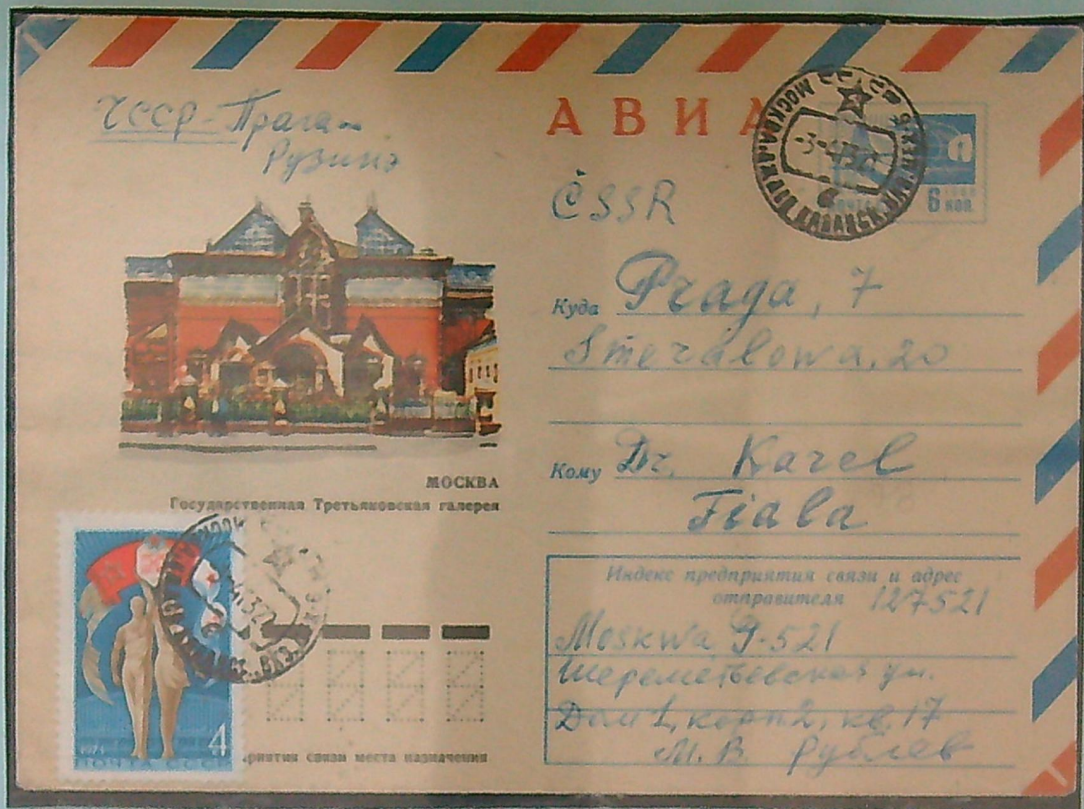 ЧССР - Прага
Рузинэ
АВИА
6 коп.
ČSSR
Куда Praga, 7
Smeralowa, 20
МОСКВА
Государственная Третьяковская галерея
Кому Dr. Karel
Fiala
Индекс предприятия связи и адрес
отправителя 127521
Moskwa I-521
Шереметьевская ул.
Дом 1, корп 2, кв. 17
М. В. Рублев
4
ПОЧТА СССР
связи места назначения